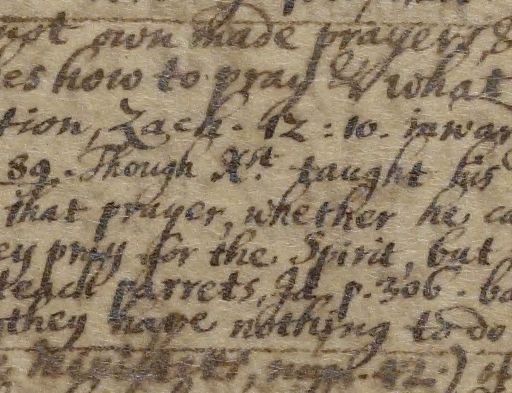 ust own made prayers, &
es how to pray & what
tion, Zach. 12:10. inwar
89. Though Xst. taught his
that prayer, whether he ca
ey pray for the Spirit, but
teach parrets, Id p. 306. ba
they have nothing to do
42.) if